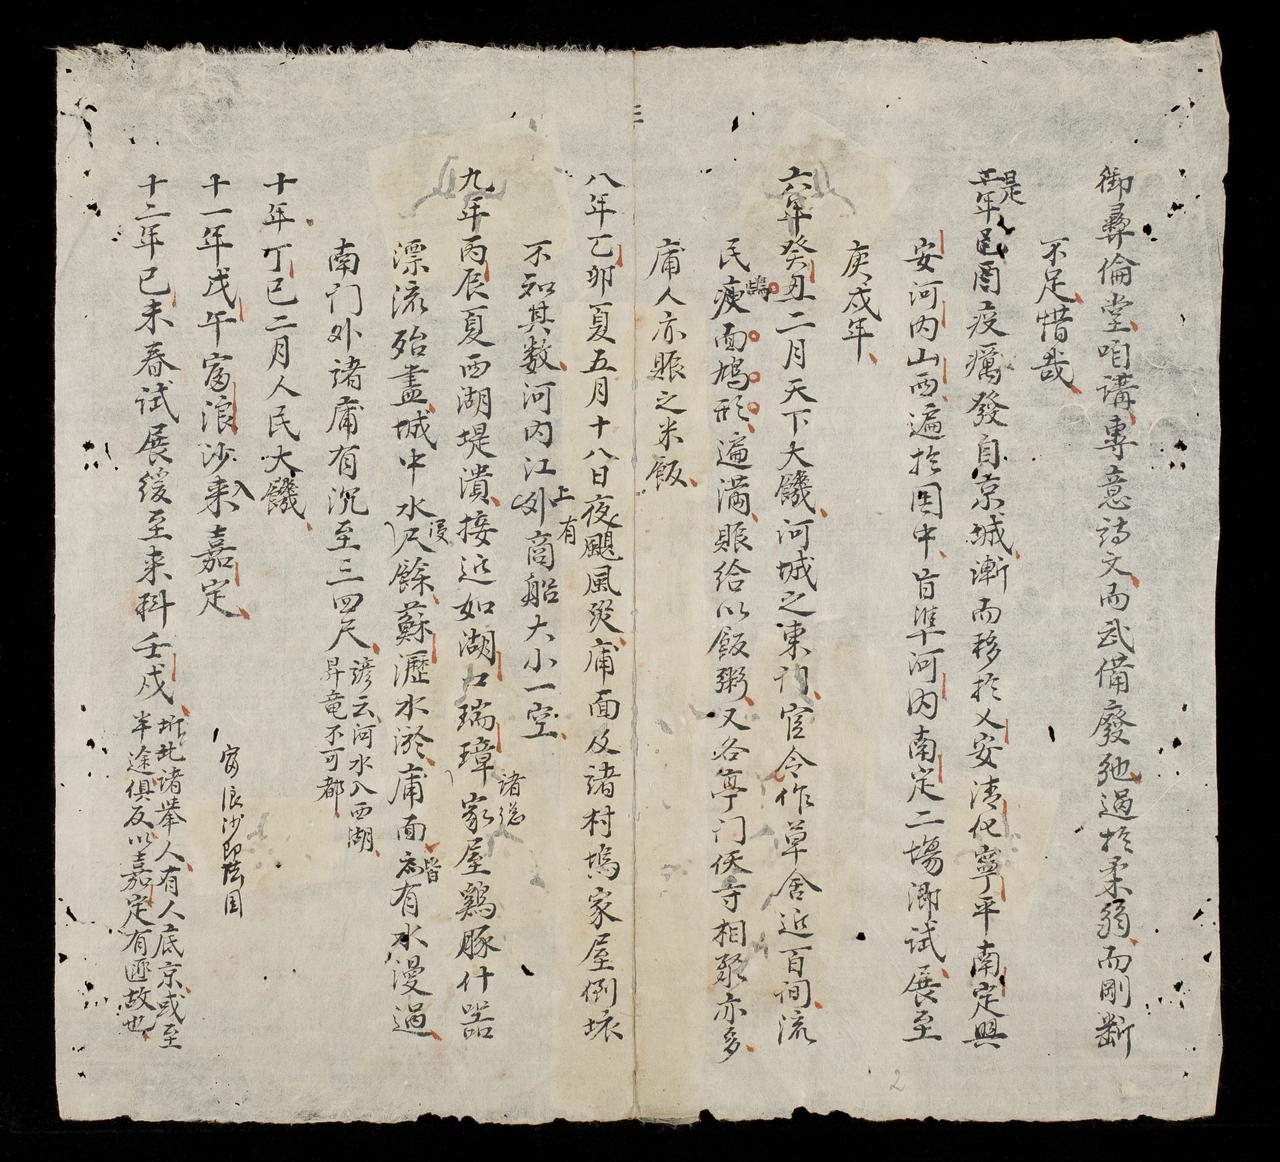 御彝倫堂咱講專意詩文而武備廢弛過於柔弱而剛斷
不足惜哉
是年己酉疫癘發自京城漸而移於乂安清化寧平南定興
安河內山西遍於国中旨準河內南定二場鄉試展至
庚戌年
六年癸丑二月天下大饑河城之東门官令作草舍近百间流
民瘐面鳩形遍滿賑給以飯粥又各亭门佚寺相聚亦多
庯人亦賑之米飯
三
八年乙卯夏五月十八日夜颶風発庯面及諸村塢家屋倒坏
不知其数河內江外上有商船大小一空
諸總
九年丙辰夏西湖堤潰接近如湖口瑞璋家屋鷄豚什器
漂流殆盡城中水浸尺餘蘇瀝水於庯面皆有水漫過
南门外諸庯有沉至三四尺諺云河水入西湖
昇竜不可都
十年丁巳二月人民大饑
十一年戊午富浪沙來入嘉定
富浪沙即法国
十二年己未春試展緩至来科壬戌圻北諸舉人有人底京或至
半途俱反以嘉定有匪故也
2